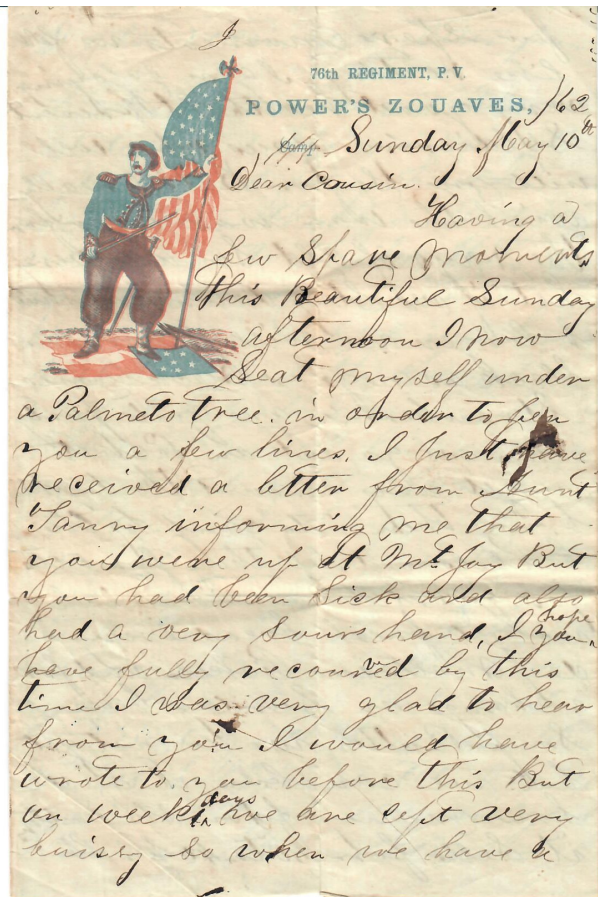 76th REGIMENT, P. V.
POWER'S ZOUAVES, /62
Camp Sunday May 10th
Dear Cousin.
Having a
few spare moments
this Beautiful Sunday
afternoon I now
Seat myself under
a Palmeto tree. in order to pen
you a few lines. I Just have
received a letter from Aunt
Fanny informing me that
you were up at Mt Joy But
you had been Sick and also
had a very Soure hand, I hope you
have fully recovered by this
time I was very glad to hear
from you I would have
wrote to you before this But
on week days we are cept very
buissy So when we have a